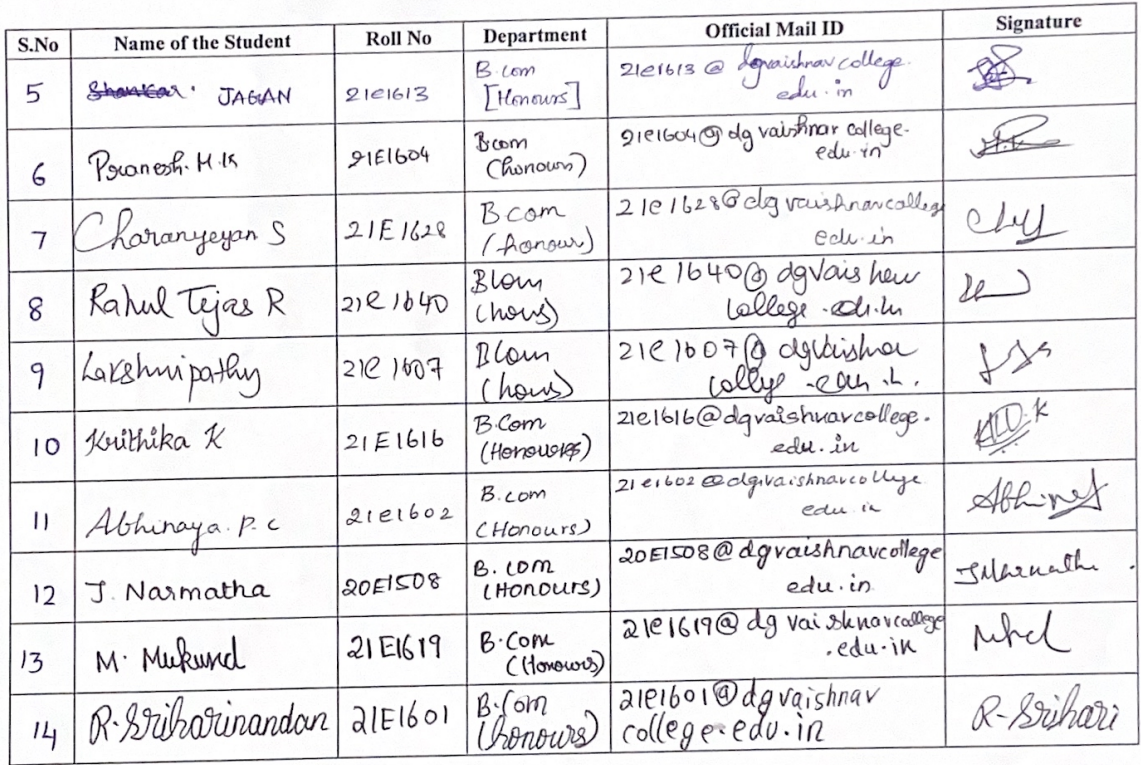 S.No Name of the Student Roll No Department Official Mail ID Signature
5 Shankar. JAGAN 21e1613 B.com [Honours] 21e1613 @ dgvaishnav college. edu.in
6 Pranesh. H.K 21E1604 Bcom (honours) 21e1604@ dg vaishnav college. edu.in
7 Charanyeyan S 21E1628 B com (honour) 21e1628@dg vaishnavcollege edu.in
8 Rahul Tejas R 21e1640 Bcom (hons) 21e1640@ dgvaishnav college.edu.in
9 Lakshmipathy 21e1607 Bcom (hons) 21e1607@ dgvaishna college.edu.in.
10 Krithika K 21E1616 B.Com (Honours) 21e1616@dgvaishnavcollege. edu.in
11 Abhinaya. P. C 21e1602 B.com (Honours) 21e1602@dgvaishnavcollege edu.in Abhinaya
12 J. Narmatha 20E1508 B.com (Honours) 20E1508@dgvaishnavcollege edu.in. J Narmatha.
13 M. Mukund 21E1619 B.Com (Honours) 21e1619@ dg vaishnavcollege .edu.in
14 R. Sriharinandan 21E1601 B.Com (honours) 21e1601@dgvaishnav college.edu.in R. Srihari